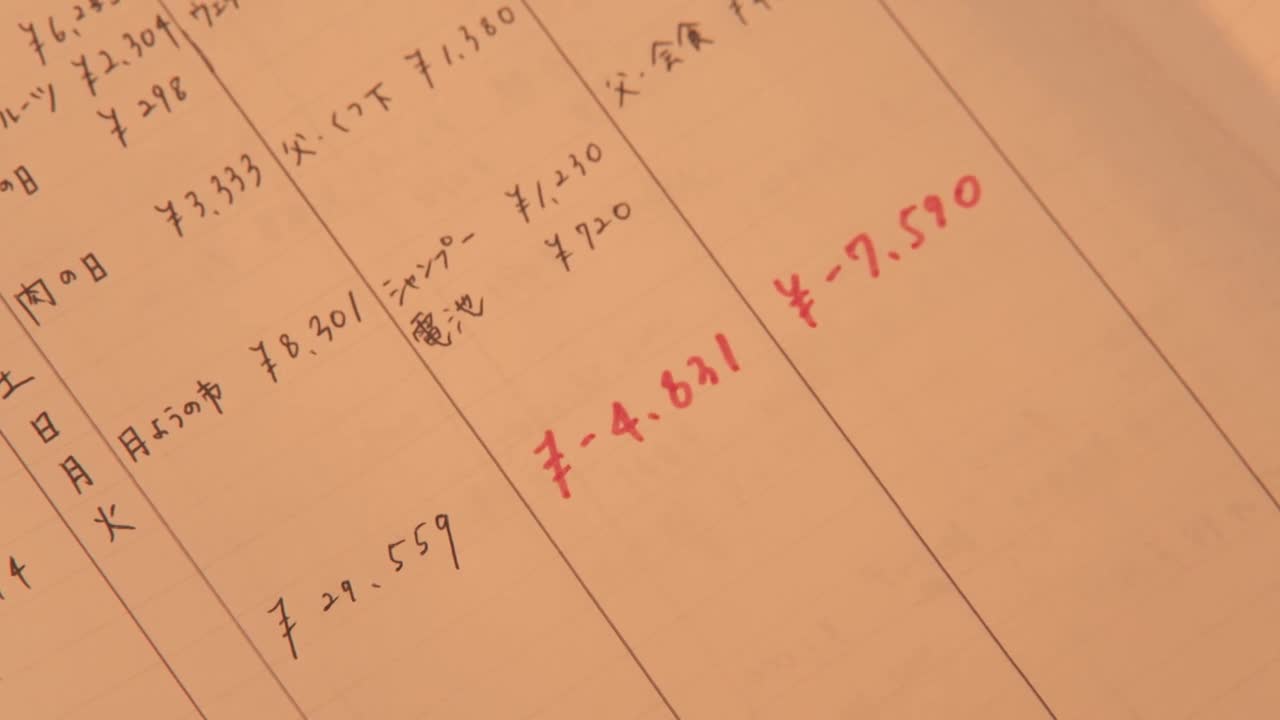 ¥2,304
ルーツ
¥298
の日
¥3,333
肉の日
月ようの市 ¥8,301
¥29,559
父・くつ下 ¥1,380
シャンプー ¥1,230
電池 ¥720
¥-4,831
父・会食
¥-7,590
土
日
月
火
4